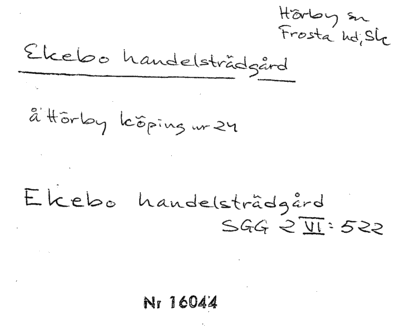 Hörby sn
Frosta hd, Sk
Ekebo handelsträdgård
å Hörby köping nr 24
Ekebo handelsträdgård
SGG 2 VI: 522
Nr 16044